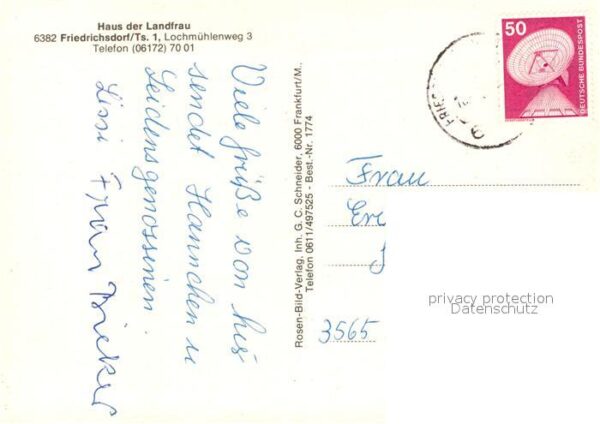 Haus der Landfrau
6382 Friedrichsdorf/Ts. 1, Lochmühlenweg 3
Telefon (06172) 70 01
Viele Grüße von hier
sendet Hannchen u
Leidensgenossinen.
Lissi Frau Bücker
Rosen-Bild-Verlag, Inh. G. C. Schneider, 6000 Frankfurt/M.
Telefon 0611/497525 - Best.-Nr. 1774
50
DEUTSCHE BUNDESPOST
FRIED
Frau
3565
privacy protection
Datenschutz